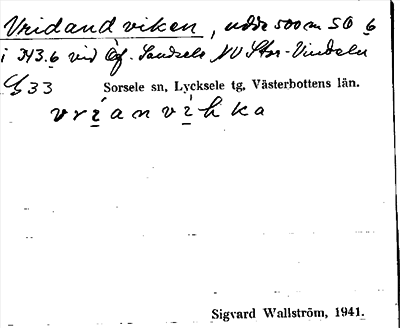 Vridandviken, udde 500 m SO 6
i 343.6 vid Gf. Sandsele NV Stor-Vindeln
33 Sorsele sn, Lycksele tg, Västerbottens län.
vrianvikka
Sigvard Wallström, 1941.